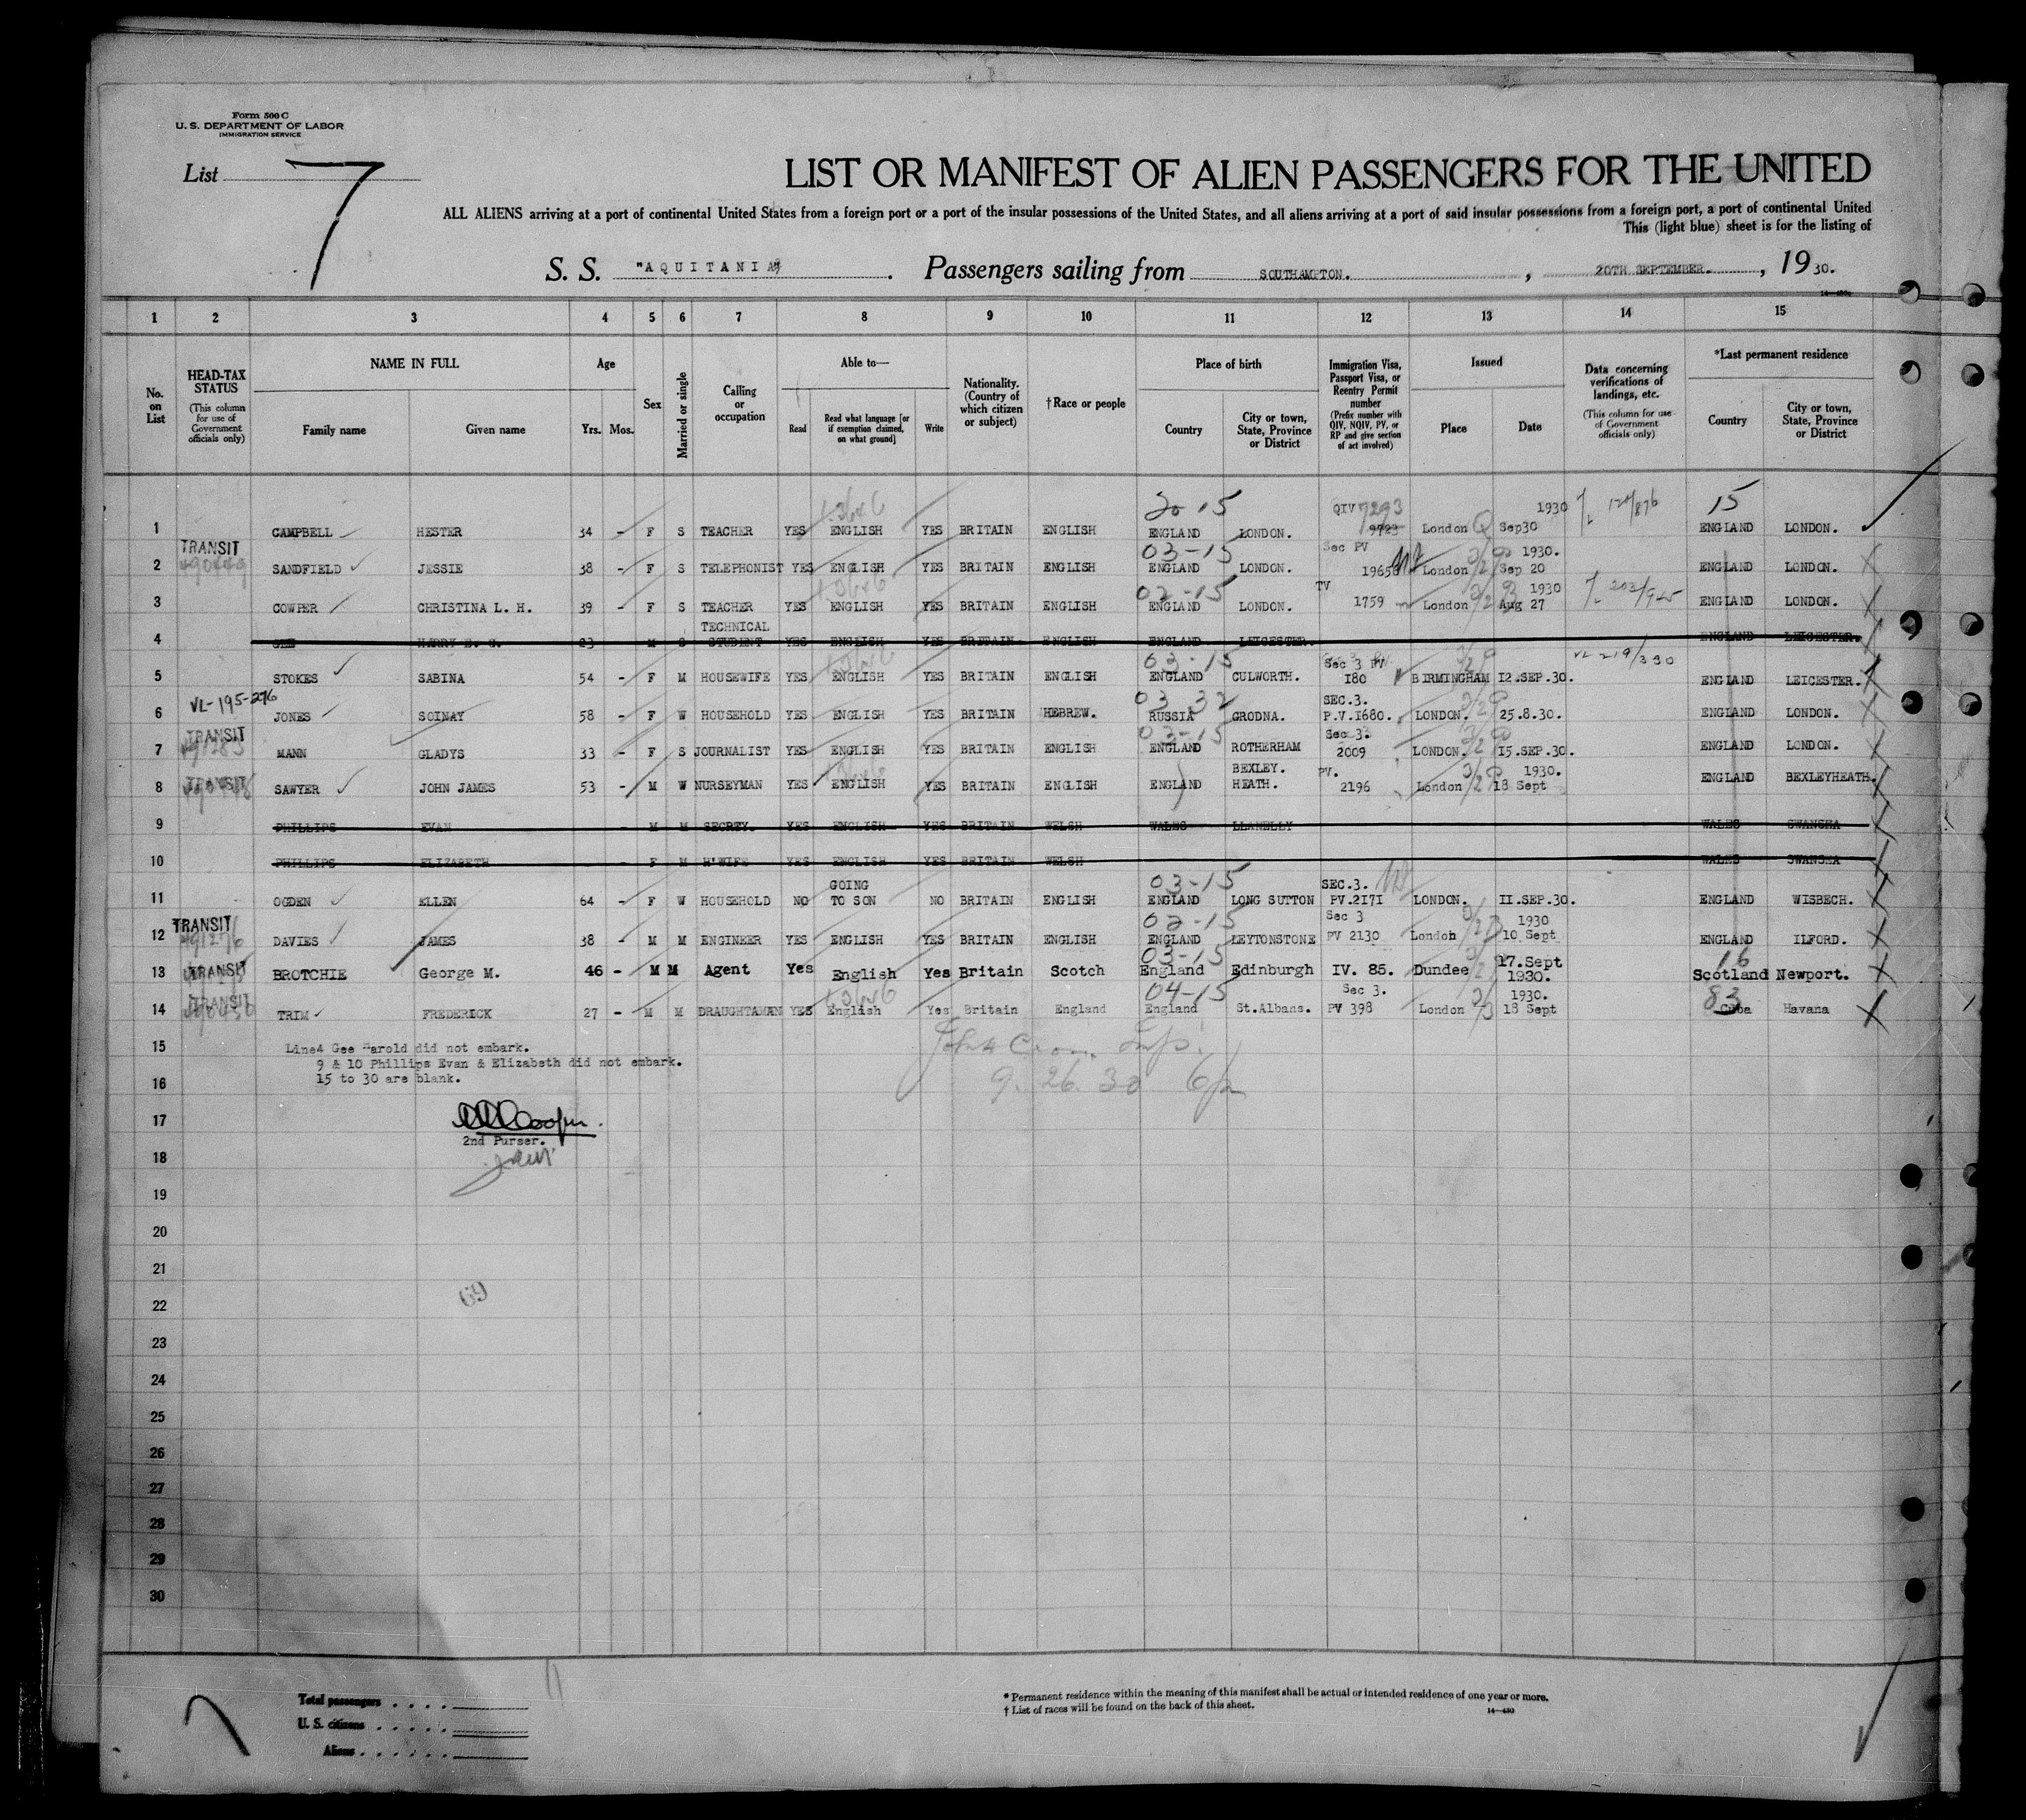 Form 500 C
U. S. DEPARTMENT OF LABOR
IMMIGRATION SERVICE
List 7
LIST OR MANIFEST OF ALIEN PASSENGERS FOR THE UNITED
ALL ALIENS arriving at a port of continental United States from a foreign port or a port of the insular possessions of the United States, and all aliens arriving at a port of said insular possessions from a foreign port, a port of continental United
This (light blue) sheet is for the listing of
S. S. "AQUITANIA" . Passengers sailing from SOUTHAMPTON. , 20TH SEPTEMBER. , 19 30.
1 2 3 4 5 6 7 8 9 10 11 12 13 14 15
No. on List
HEAD-TAX STATUS (This column for use of Government officials only)
NAME IN FULL
Family name Given name
Age
Yrs. Mos.
Sex
Married or single
Calling or occupation
Able to—
Read
Read what language [or if exemption claimed, on what ground]
Write
Nationality. (Country of which citizen or subject)
†Race or people
Place of birth
Country
City or town, State, Province or District
Immigration Visa, Passport Visa, or Reentry Permit number (Prefix number with QIV, NQIV, PV, or RP and give section of act involved)
Issued
Place Date
Data concerning verifications of landings, etc. (This column for use of Government officials only)
*Last permanent residence
Country
City or town, State, Province or District
20-15 QIV 7293 1930 15
1 CAMPBELL HESTER 34 - F S TEACHER YES ENGLISH YES BRITAIN ENGLISH ENGLAND LONDON. 9723 London Sep30 ENGLAND LONDON.
TRANSIT 03-15 Sec PV 1930.
2 SANDFIELD JESSIE 38 - F S TELEPHONIST YES ENGLISH YES BRITAIN ENGLISH ENGLAND LONDON. 19658 London Sep 20 ENGLAND LONDON.
02-15 TV 1930
3 COWPER CHRISTINA L. H. 39 - F S TEACHER YES ENGLISH YES BRITAIN ENGLISH ENGLAND LONDON. 1759 London Aug 27 ENGLAND LONDON.
TECHNICAL
4 GEE HARRY 23 M S STUDENT YES ENGLISH YES BRITAIN ENGLISH ENGLAND LEICESTER. ENGLAND LEICESTER.
03-15 Sec 3 PV VL-219/330
5 STOKES SABINA 54 - F M HOUSEWIFE YES ENGLISH YES BRITAIN ENGLISH ENGLAND CULWORTH. I80 BIRMINGHAM I2.SEP.30. ENGLAND LEICESTER.
VL-195-276 03 32 SEC.3.
6 JONES SOINAY 58 - F W HOUSEHOLD YES ENGLISH YES BRITAIN HEBREW. RUSSIA GRODNA. P.V.I680. LONDON. 25.8.30. ENGLAND LONDON.
TRANSIT 03-15 Sec 3.
7 MANN GLADYS 33 - F S JOURNALIST YES ENGLISH YES BRITAIN ENGLISH ENGLAND ROTHERHAM 2009 LONDON. I5.SEP.30. ENGLAND LONDON.
TRANSIT BEXLEY. PV. 1930.
8 SAWYER JOHN JAMES 53 - M W NURSEYMAN YES ENGLISH YES BRITAIN ENGLISH ENGLAND HEATH. 2196 London 18 Sept ENGLAND BEXLEYHEATH.
9 PHILLIPS EVAN - M M SECREY. YES ENGLISH YES BRITAIN WELSH WALES LLANELLY WALES SWANSEA
10 PHILLIPS ELIZABETH - F M H'WIFE YES ENGLISH YES BRITAIN WELSH WALES SWANSEA
GOING 03-15 SEC.3.
11 OGDEN ELLEN 64 - F W HOUSEHOLD NO TO SON NO BRITAIN ENGLISH ENGLAND LONG SUTTON PV.2I7I LONDON. II.SEP.30. ENGLAND WISBECH.
TRANSIT 02-15 Sec 3 1930
12 DAVIES JAMES 38 - M M ENGINEER YES ENGLISH YES BRITAIN ENGLISH ENGLAND LEYTONSTONE PV 2130 London 10 Sept ENGLAND ILFORD.
TRANSIT 03-15 17.Sept 16
13 BROTCHIE George M. 46 - M M Agent Yes English Yes Britain Scotch England Edinburgh IV. 85. Dundee 1930. Scotland Newport.
TRANSIT 04-15 Sec 3. 1930. 83
14 TRIM FREDERICK 27 - M M DRAUGHTAMAN YES English Yes Britain England England St.Albans. PV 398 London 18 Sept Cuba Havana
15 Line4 Gee Harold did not embark.
9 & 10 Phillips Evan & Elizabeth did not embark.
16 15 to 30 are blank.
9. 26. 30
17
2nd Purser.
18
19
20
21
22
69
23
24
25
26
27
28
29
30
Total passengers . . . .
U. S. citizens . . . . .
Aliens . . . . . .
* Permanent residence within the meaning of this manifest shall be actual or intended residence of one year or more.
† List of races will be found on the back of this sheet.
14—430